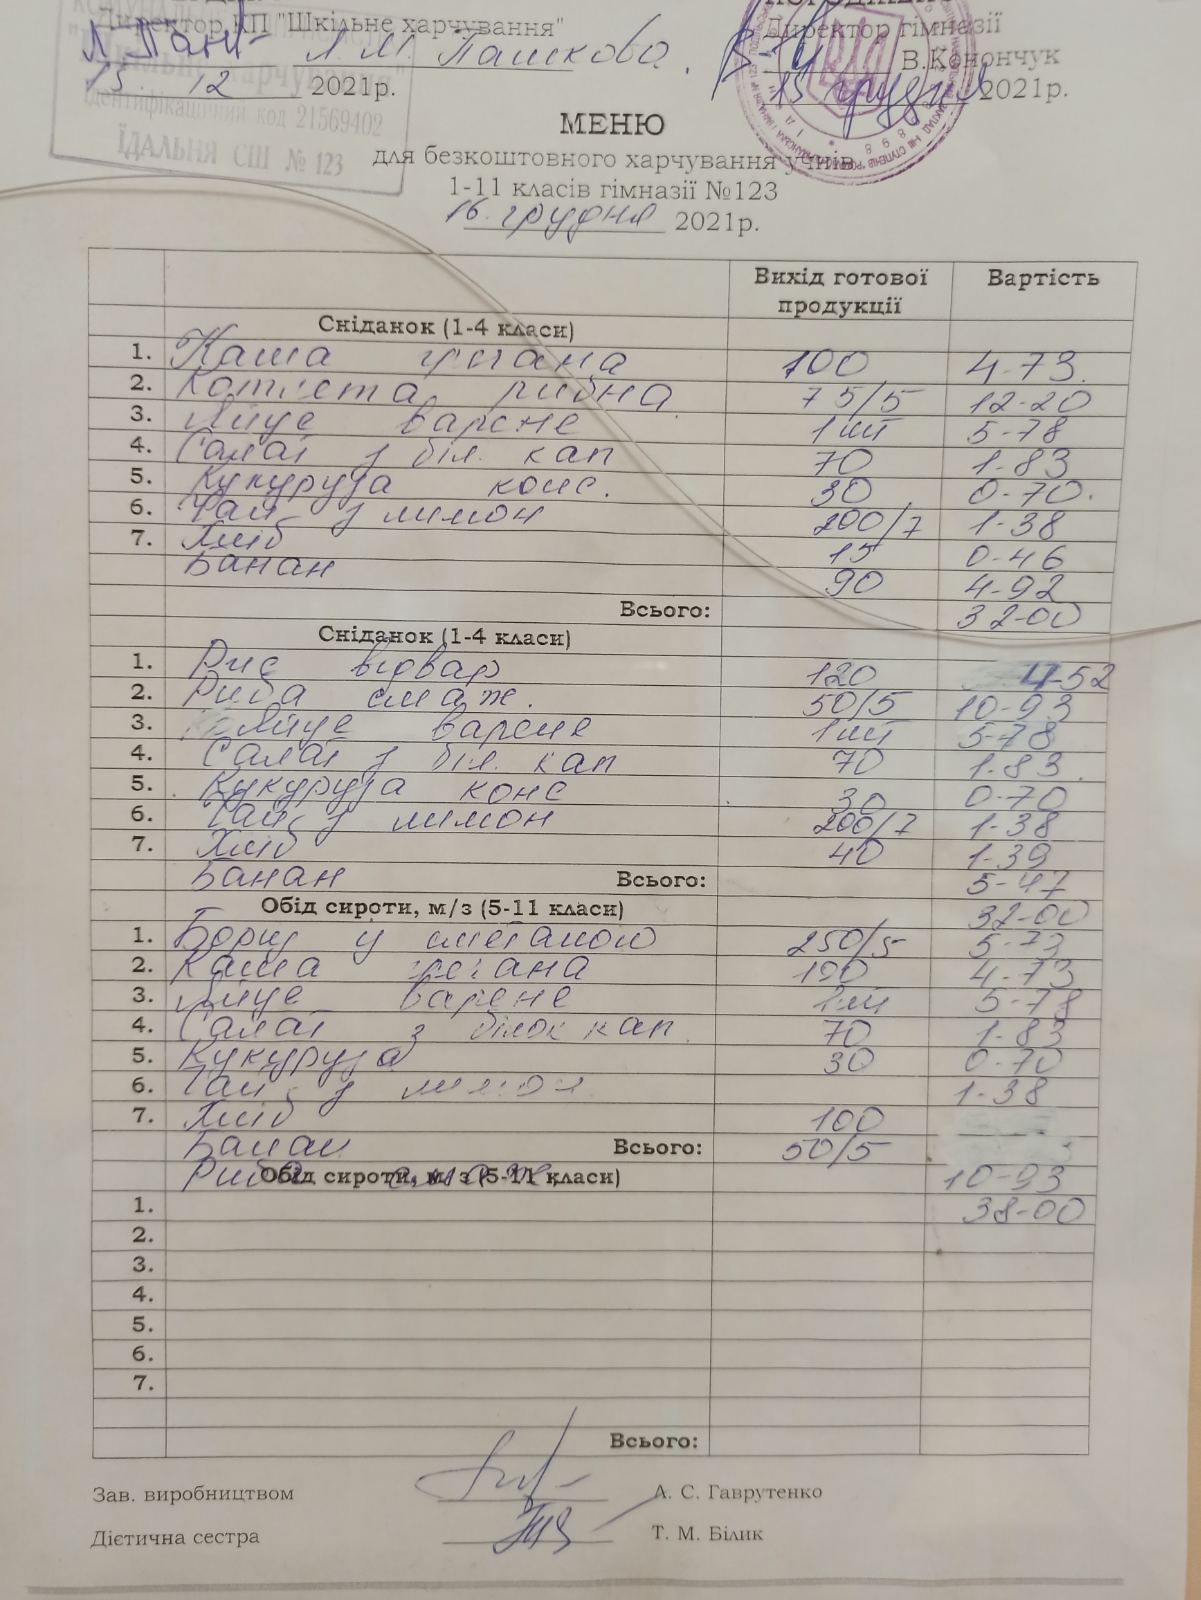 Директор КП "Шкільне харчування"
Л.М. Пашкова
15. 12 2021р.
Ідентифікаційний код 21569402
ЇДАЛЬНЯ СШ № 123
Директор гімназії
В.Конончук
15 грудня 2021р.
МЕНЮ
для безкоштовного харчування учнів
1-11 класів гімназії №123
16. грудня 2021р.
Вихід готової продукції Вартість
Сніданок (1-4 класи)
1. Каша гречана 100 4-73
2. Котлета рибна 75/5 12-20
3. Яйце варене 1шт 5-78
4. Салат з біл. кап 70 1-83
5. Кукуруза конс. 30 0-70.
6. Чай з лимон 200/7 1-38
7. Хліб 15 0-46
Банан 90 4-92
Всього: 32-00
Сніданок (1-4 класи)
1. Рис відвар 120 4-52
2. Риба смаж. 50/5 10-93
3. Яйце варене 1шт 5-78
4. Салат з біл. кап 70 1-83.
5. Кукуруза конс 30 0-70
6. Чай з лимон 200/7 1-38
7. Хліб 40 1-39
Банан Всього: 5-47
Обід сироти, м/з (5-11 класи) 32-00
1. Борщ у сметаною 250/5 5-73
2. Каша гречана 100 4-73
3. Яйце варене 1шт 5-78
4. Салат з білок кап 70 1-83
5. Кукуруза 30 0-70
6. Чай з лимон 1-38
7. Хліб 100
Банан Всього: 50/5
Риба смаж. Обід сироти, м/з (5-11 класи) 10-93
1. 38-00
2.
3.
4.
5.
6.
7.
Всього:
Зав. виробництвом А. С. Гаврутенко
Дієтична сестра Т. М. Білик